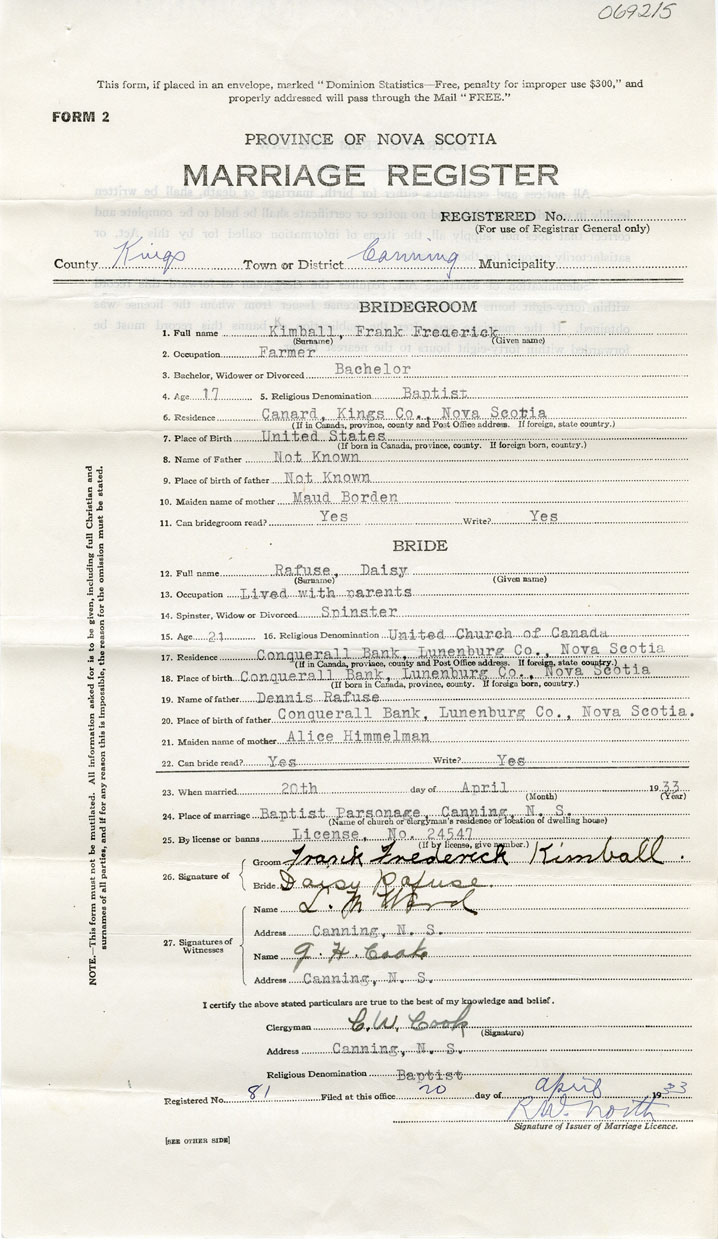 069215
This form, if placed in an envelope, marked "Dominion Statistics—Free, penalty for improper use $300," and
properly addressed will pass through the Mail "FREE."
FORM 2
PROVINCE OF NOVA SCOTIA
MARRIAGE REGISTER
REGISTERED No.
(For use of Registrar General only)
County Kings Town or District Canning Municipality
BRIDEGROOM
1. Full name Kimball, Frank Frederick
(Surname) (Given name)
2. Occupation Farmer
3. Bachelor, Widower or Divorced Bachelor
4. Age 17 5. Religious Denomination Baptist
6. Residence Canard, Kings Co., Nova Scotia
(If in Canada, province, county and Post Office address. If foreign, state country.)
7. Place of Birth United States
(If born in Canada, province, county. If foreign born, country.)
8. Name of Father Not Known
9. Place of birth of father Not Known
10. Maiden name of mother Maud Borden
11. Can bridegroom read? Yes Write? Yes
BRIDE
12. Full name Rafuse, Daisy
(Surname) (Given name)
13. Occupation Lived with parents
14. Spinster, Widow or Divorced Spinster
15. Age 21 16. Religious Denomination United Church of Canada
17. Residence Conquerall Bank, Lunenburg Co., Nova Scotia
(If in Canada, province, county and Post Office address. If foreign, state country.)
18. Place of birth Conquerall Bank, Lunenburg Co., Nova Scotia
(If born in Canada, province, county. If foreign born, country.)
19. Name of father Dennis Rafuse
20. Place of birth of father Conquerall Bank, Lunenburg Co., Nova Scotia.
21. Maiden name of mother Alice Himmelman
22. Can bride read? Yes Write? Yes
23. When married 20th day of April 1933
(Month) (Year)
24. Place of marriage Baptist Parsonage, Canning, N. S.
(Name of church or clergyman's residence or location of dwelling house)
25. By license or banns License, No. 24547
(If by license, give number.)
26. Signature of
Groom Frank Frederick Kimball.
Bride Daisy Rafuse.
27. Signatures of Witnesses
Name L. M. Ward
Address Canning, N. S.
Name G. H. Cook
Address Canning, N. S.
I certify the above stated particulars are true to the best of my knowledge and belief.
Clergyman C. W. Cook
(Signature)
Address Canning, N. S.
Religious Denomination Baptist
Registered No. 81 Filed at this office 20 day of April 1933
R. W. North
Signature of Issuer of Marriage Licence.
[SEE OTHER SIDE]
NOTE.—This form must not be mutilated. All information asked for is to be given, including full Christian and
surnames of all parties, and if for any reason this is impossible, the reason for the omission must be stated.